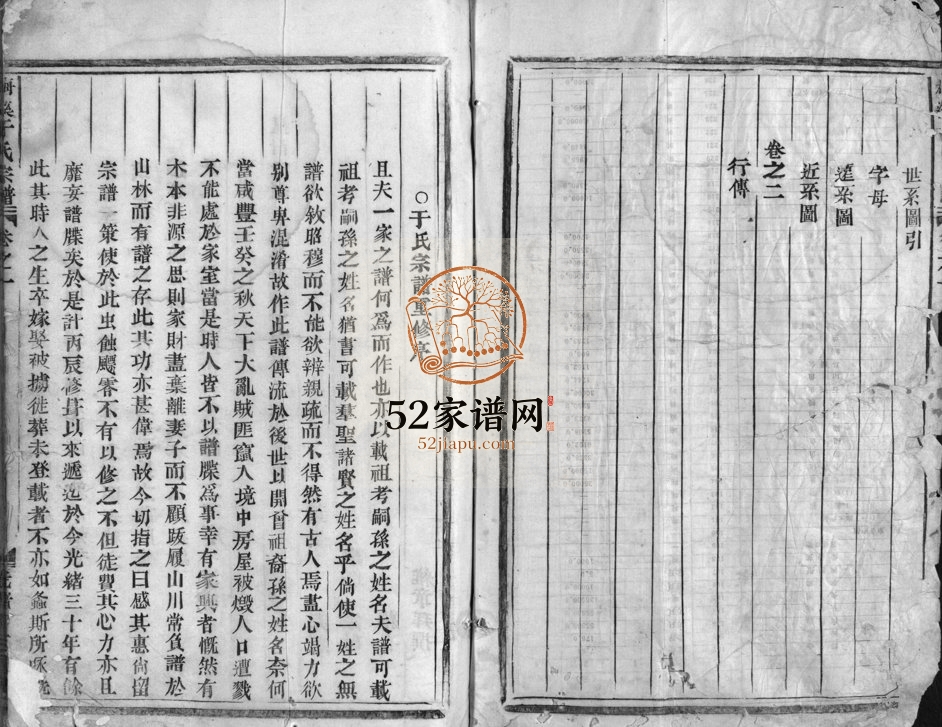 世系圖引
字母
遠系圖
近系圖
卷之二
行傳
○于氏宗譜重修序
且夫一家之譜何爲而作也亦以載祖考嗣孫之姓名夫譜可載
祖考嗣孫之姓名猶書可載羣聖諸賢之姓名乎倘使一姓之無
譜欲敘昭穆而不能欲辨親疏而不得然有古人焉盡心竭力欲
別尊卑混淆故作此譜傳流於後世以開曾祖裔孫之姓名奈何
當咸豐壬癸之秋天下大亂賊匪竄人境中房屋被燬人口遭戮
不能處於家室當是時人皆不以譜牒爲事幸有家興者慨然有
木本非源之思則家財盡棄離妻子而不顧跋履山川常負譜於
山林而有譜之存此其功亦甚偉焉故今切指之曰感其惠尚留
宗譜一策使於此虫蝕飃零不有以修之不但徒費其心力亦且
靡妄譜牒矣於是計丙辰修葺以來遞迄於今光緒三十年有餘
此其時人之生卒嫁娶被擄徙葬未登載者不亦如螽斯所
氏宗譜
52家谱网
52jiapu.com